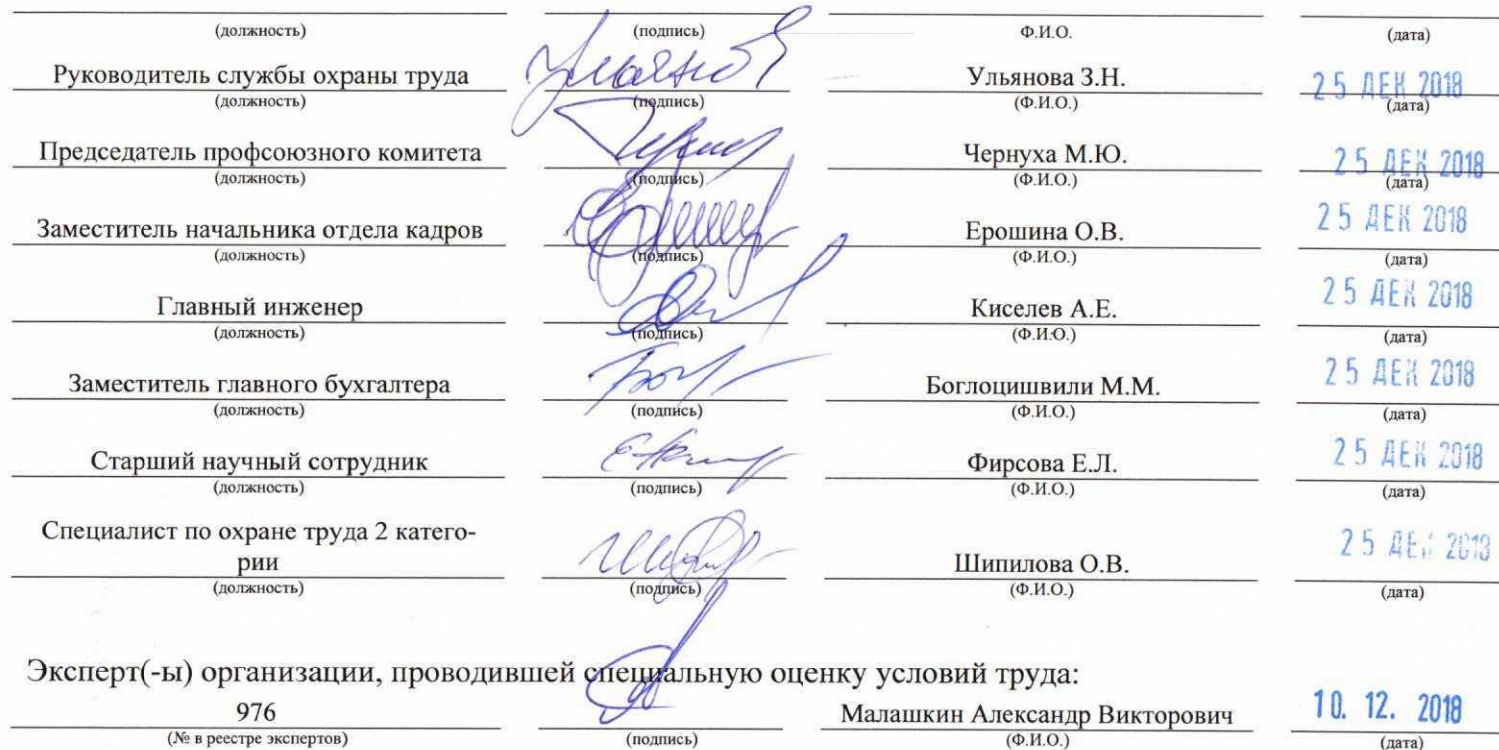 (должность) (подпись) Ф.И.О. (дата)
Руководитель службы охраны труда Ульянова З.Н. 25 ДЕК 2018
(должность) (подпись) (Ф.И.О.) (дата)
Председатель профсоюзного комитета Чернуха М.Ю. 25 ДЕК 2018
(должность) (подпись) (Ф.И.О.) (дата)
Заместитель начальника отдела кадров Ерошина О.В. 25 ДЕК 2018
(должность) (подпись) (Ф.И.О.) (дата)
Главный инженер Киселев А.Е. 25 ДЕК 2018
(должность) (подпись) (Ф.И.О.) (дата)
Заместитель главного бухгалтера Боглоцишвили М.М. 25 ДЕК 2018
(должность) (подпись) (Ф.И.О.) (дата)
Старший научный сотрудник Фирсова Е.Л. 25 ДЕК 2018
(должность) (подпись) (Ф.И.О.) (дата)
Специалист по охране труда 2 катего-
рии Шипилова О.В. 25 ДЕК 2018
(должность) (подпись) (Ф.И.О.) (дата)
Эксперт(-ы) организации, проводившей специальную оценку условий труда:
976 Малашкин Александр Викторович 10. 12. 2018
(№ в реестре экспертов) (подпись) (Ф.И.О.) (дата)